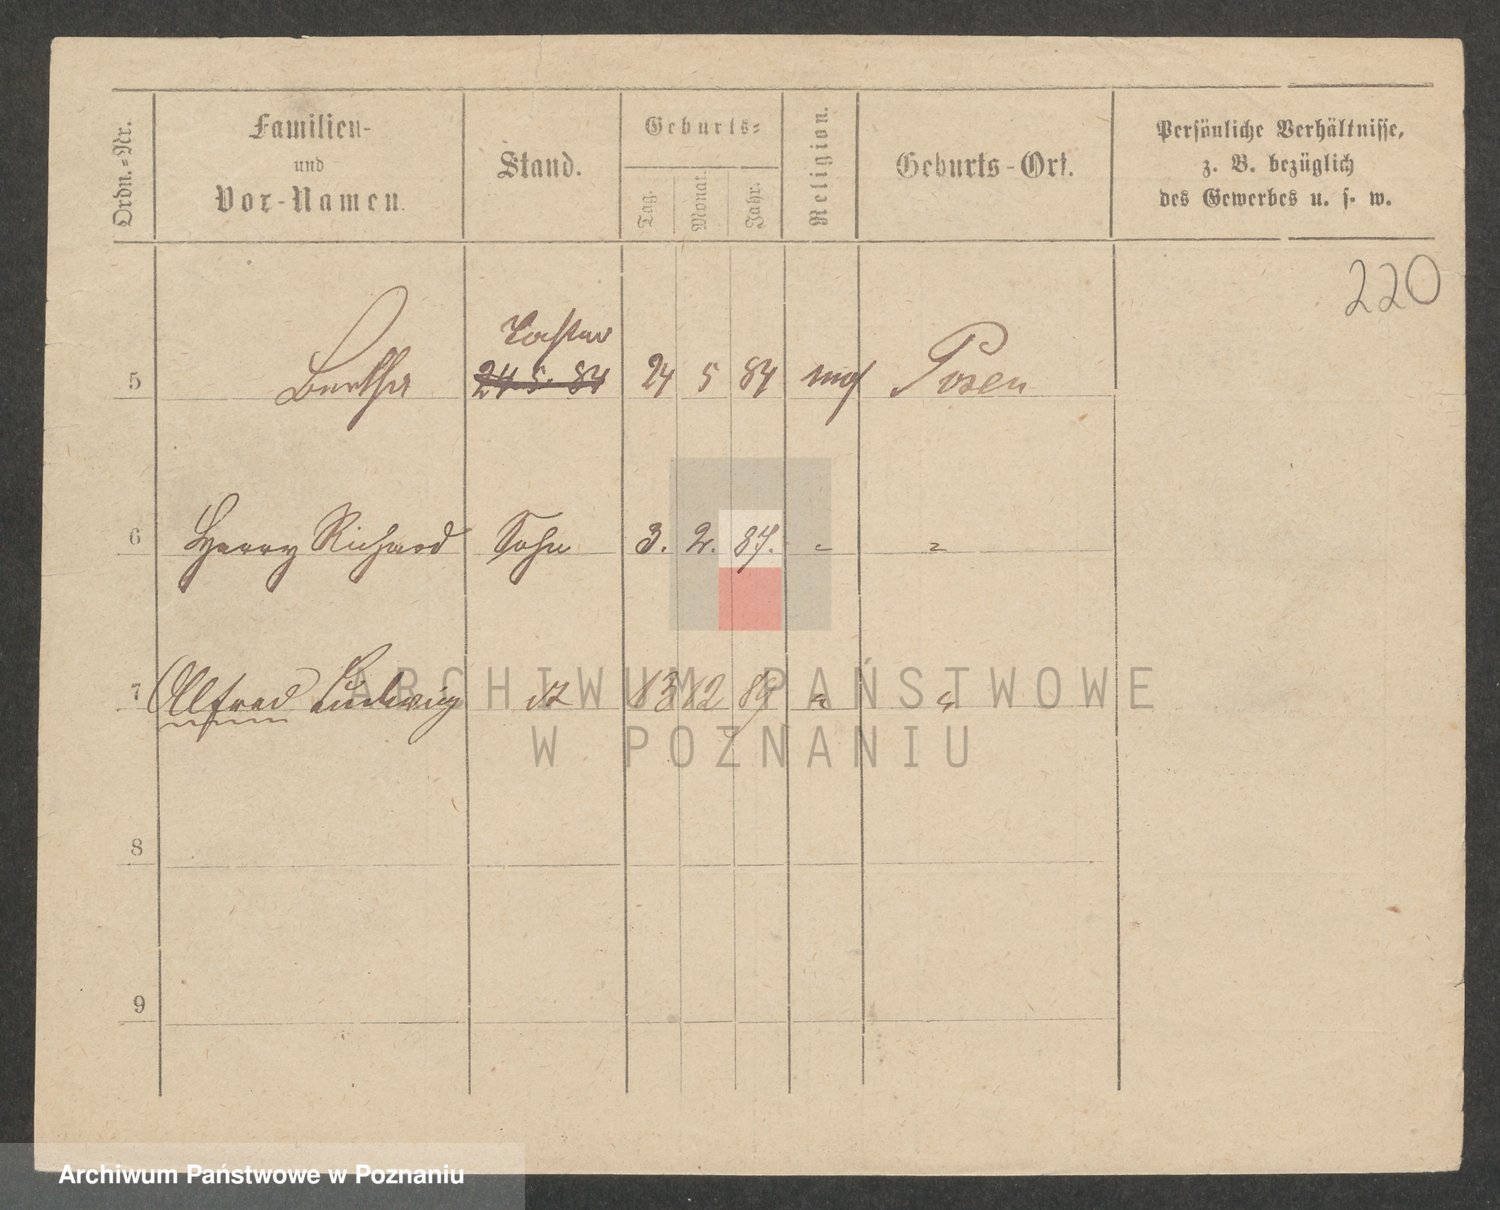 Ordn.-Nr.
Familien-
und
Vor-Namen.
Stand.
Geburts-
Tag.
Monat.
Jahr.
Religion.
Geburts-Ort.
Persönliche Verhältnisse,
z. B. bezüglich
des Gewerbes u. s. w.
220
Tochter
5 Bertha 24 5. 84 24 5 84 mos Posen
6 Harry Richard Sohn 3. 2. 87. " "
7 Alfred Ludwig dt 13 12 89 " "
8
9
ARCHIWUM PAŃSTWOWE
W POZNANIU
Archiwum Państwowe w Poznaniu